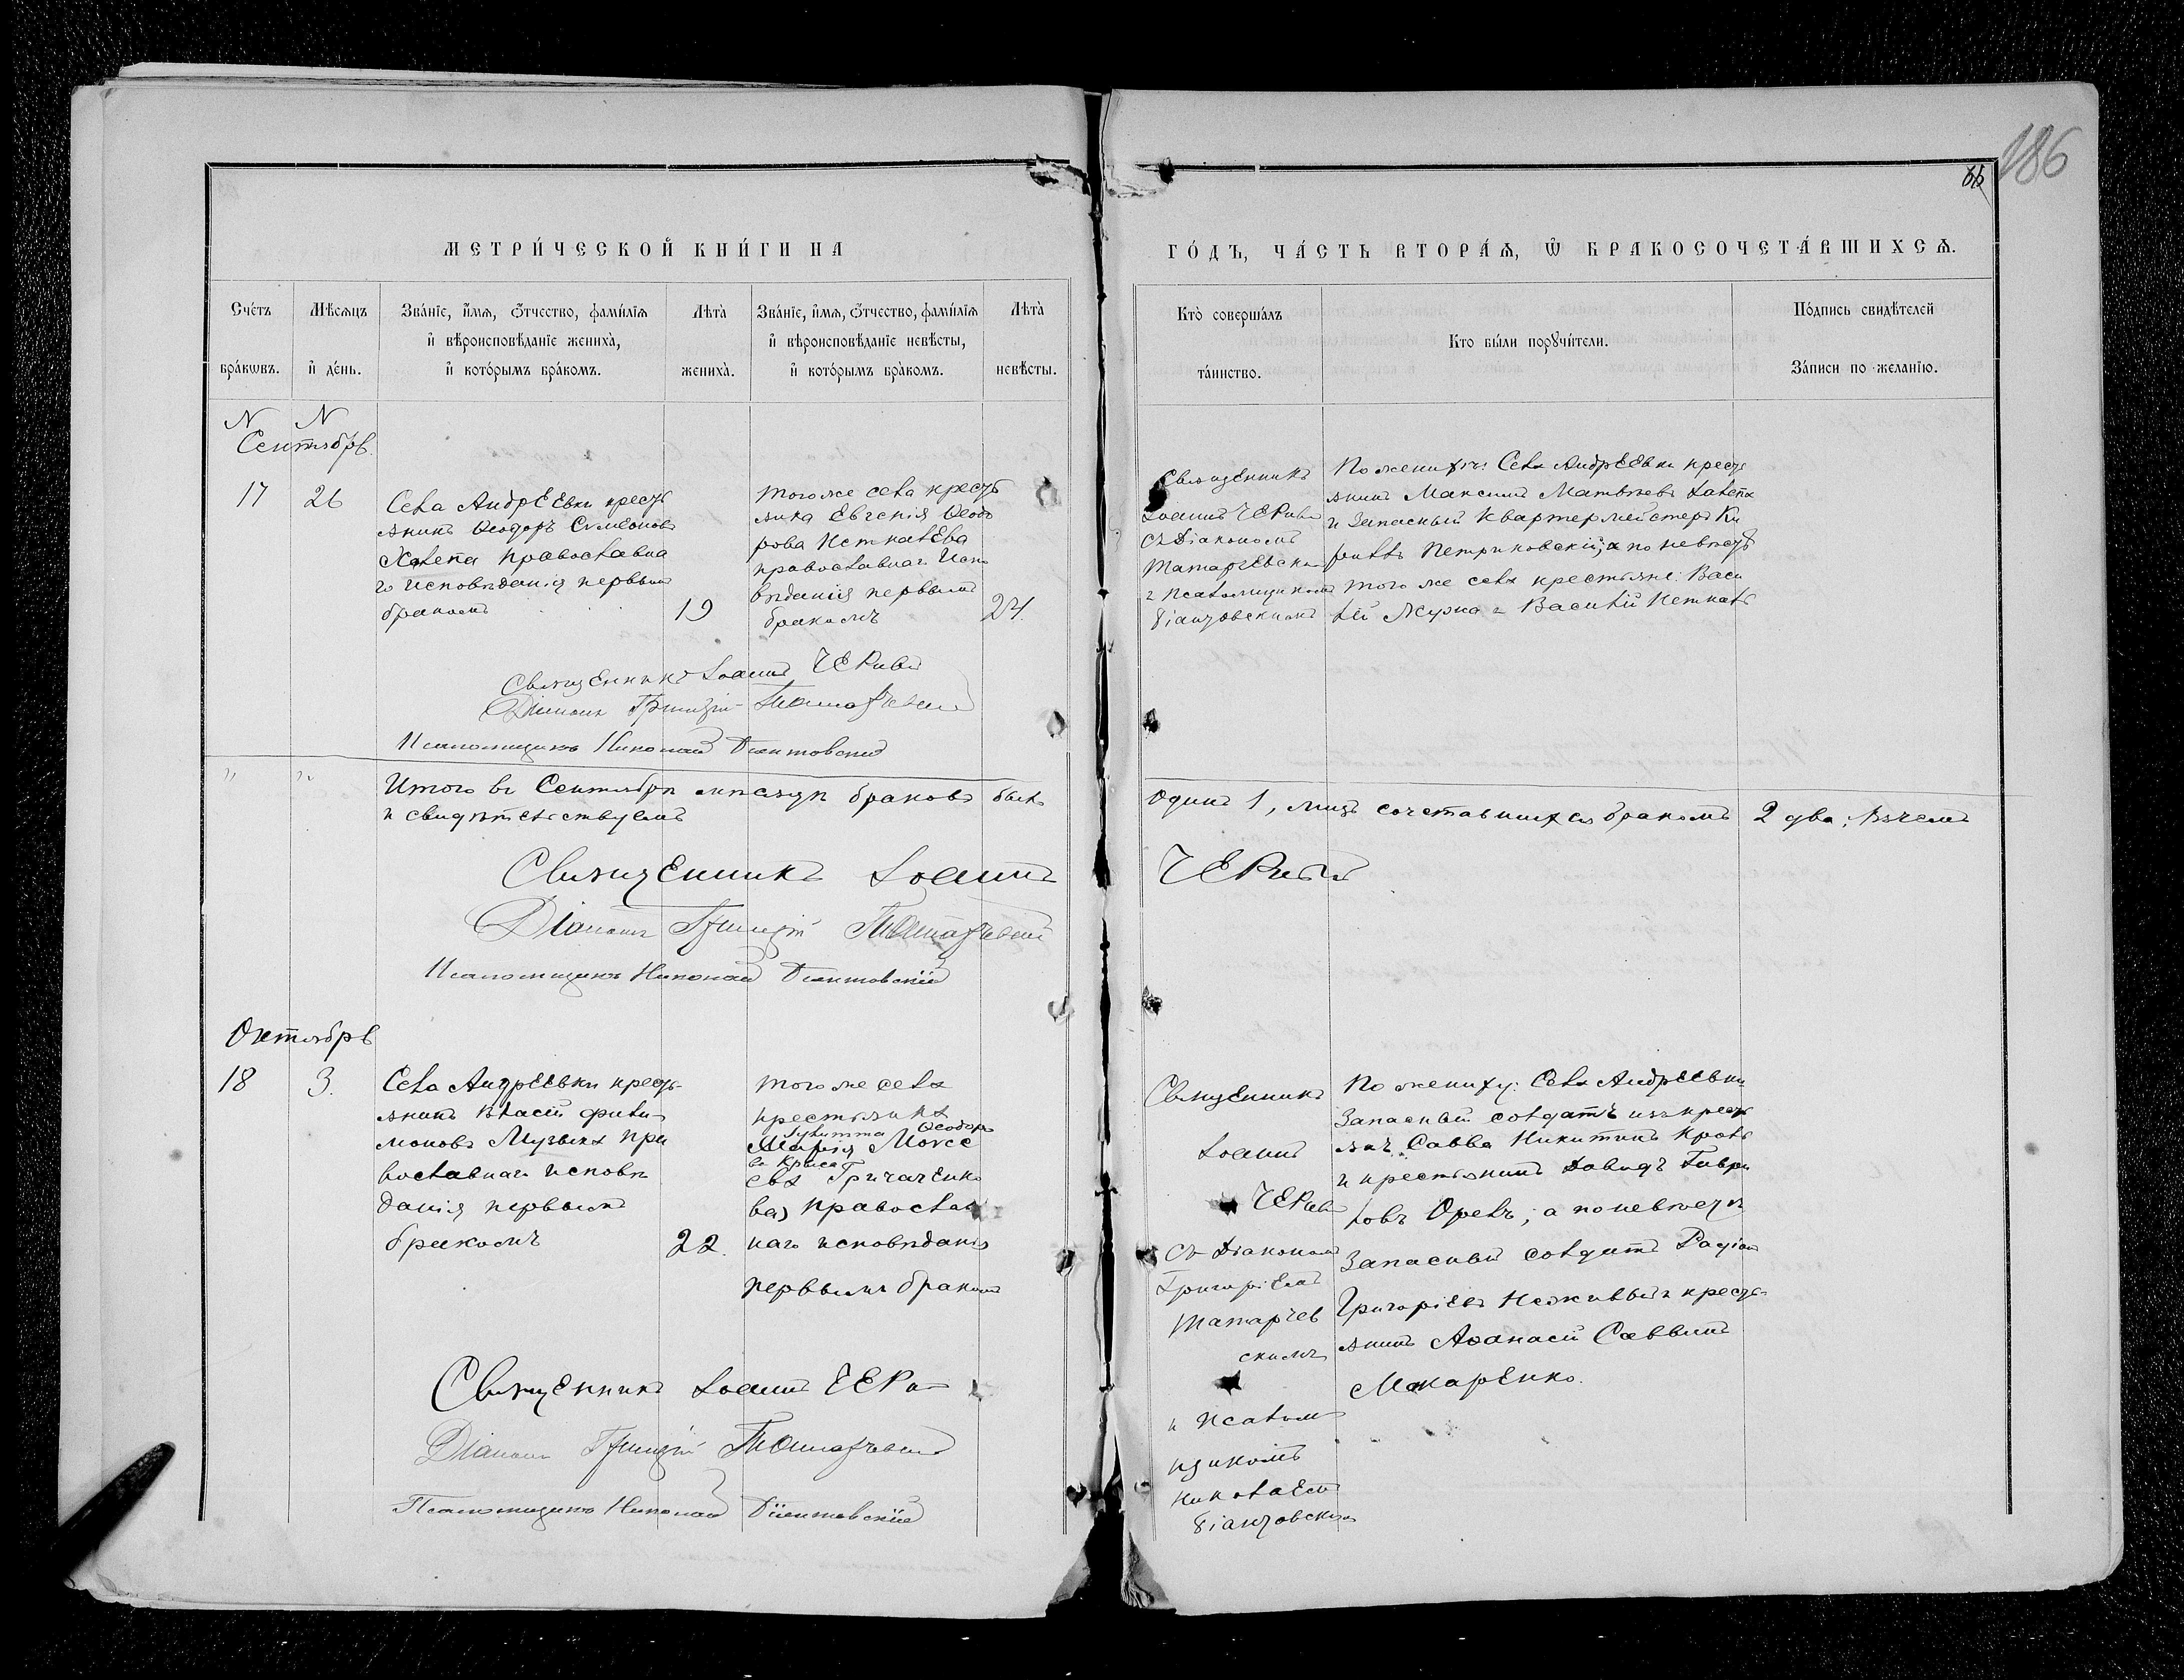 186
МЕТРИ́ЧЕСКОЙ КНИ́ГИ НА
ГО́ДЪ, ЧА́СТЬ ВТОРА́Я, Ѿ БРАКОСОЧЕТА́ВШИХСЯ.
Сче́тъ бра́кѡвъ.
Мѣ́сяцъ и де́нь.
Зва́нїе, и́мя, о́тчество, фами́лїя
и вѣроисповѣ́данїе жениха̀,
и кото́рымъ бра́комъ.
Лѣта̀
жениха̀.
Зва́нїе, и́мя, о́тчество, фами́лїя
и вѣроисповѣ́данїе невѣ́сты,
и кото́рымъ бра́комъ.
Лѣта̀
невѣ́сты.
Кто̀ соверша́лъ
та́инство.
Кто бы́ли поручи́тели.
По́дпись свидѣ́телей
За́писи по жела́нїю.
N N
Сентябрь.
17
26
Села Андреевки кресть
янинъ Ѳеодоръ Симеоновъ
Халепа православна
го исповѣданія первымъ
бракомъ
19
того же села кресть
янка Евгенія Ѳеодо
рова
православнаго Испо
вѣданія первымъ
бракомъ
24.
Священникъ
Іоаннъ
съ Діакономъ
Татарчевскимъ
и псаломщикомъ
По жениху: Села Андреевки кресть
янинъ Максимъ Матвѣевъ Халепа
и Запасный Квартермейстеръ Ки
риллъ Петриковскій; а по невѣстѣ
того же села крестьяне: Васи
лій Журка и Василій
Священникъ Іоаннъ
Діаконъ Григорій Татарчевскій
Псаломщикъ Николай
" "
Итого въ Сентябрѣ мѣсяцѣ браковъ былъ
Одинъ 1, лицъ сочетавшихся бракомъ 2 два; въ чемъ
и свидѣтельствуемъ
Священникъ Іоаннъ
Діаконъ Григорій Татарчевскій
Псаломщикъ Николай
Октябрь
18
3.
Села Андреевки кресть-
янинъ Власій Фили-
моновъ Музыка пра
вославнаго исповѣ
данія первымъ
бракомъ
22.
того же села
крестьянка
Іулитта Ѳеодоро
Марія Моисе
ва Крыса
ева Гричаченко
ва) православ
наго исповѣданія
первымъ бракомъ
Священникъ
Іоаннъ
съ Діакономъ
Григоріемъ
Татарчев
скимъ
и Псалом
щикомъ
Николаемъ
По жениху: Села Андреевки
Запасный солдатъ изъ кресть
янъ Савва Никитинъ Кроль
и крестьянинъ Давидъ Гаври
ловъ Орелъ; а по невѣстѣ
Запасный солдатъ Радіонъ
Григоріевъ Неживый и кресть-
янинъ Аѳанасій Саввинъ
Макаренко.
Священникъ Іоаннъ
Діаконъ Григорій Татарчевскій
Псаломщикъ Николай